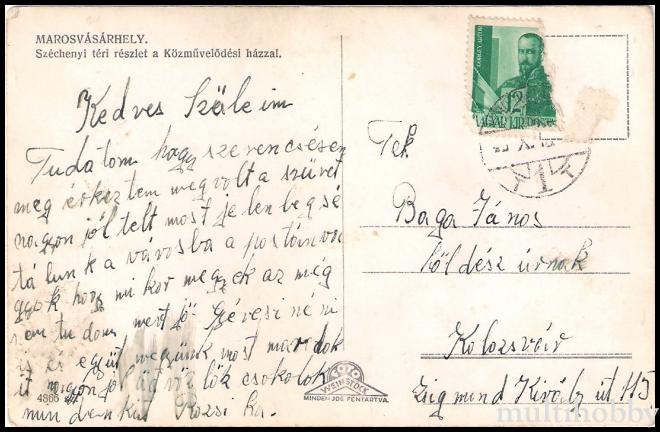 MAROSVÁSÁRHELY.
Széchenyi téri részlet a Közművelődési házzal.
Kedves Szüleim
Tudatom hogy szerencsésen
meg érkeztem meg volt a szüret
nagyon jól telt most jelen
a városba a postán
hogy mi kor megyek az még
nem tudom mert jö néni
is és együt megyünk most maradok
itt nagyon jól csokolok
minden kit Rozsi ka.
4866
WEINSTOCK
MINDEN JOG FENTARTVA.
GÖRGEY ARTUR
12
MAGYAR KIR. POSTA
1
Tek
Baga János
Földész úrnak
Kolozsvár
Zsigmond Király út 115
multihobby